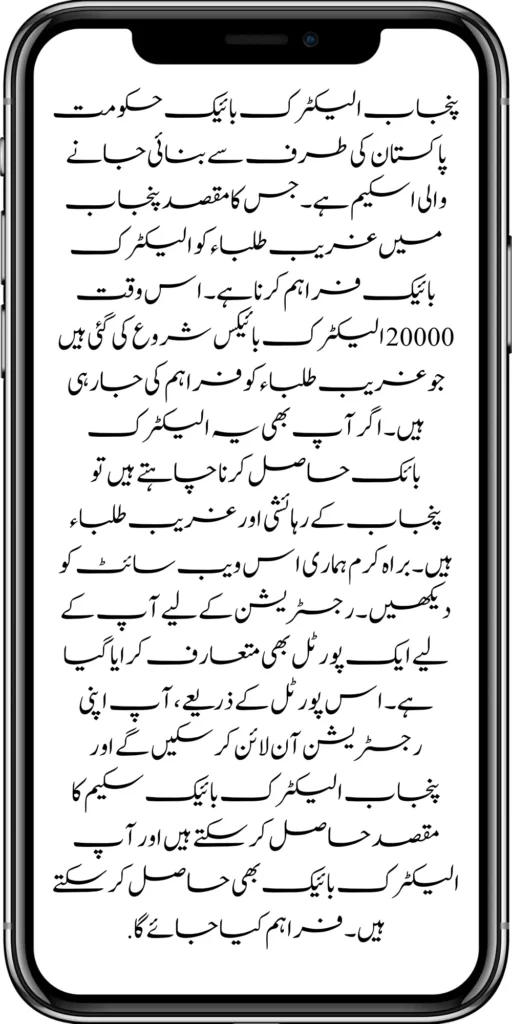 پنجاب الیکٹرک بائیک حکومت
پاکستان کی طرف سے بنائی جانے
والی اسکیم ہے۔ جس کا مقصد پنجاب
میں غریب طلباء کو الیکٹرک
بائیک فراہم کرنا ہے۔ اس وقت
20000 الیکٹرک بائیکس شروع کی گئی ہیں
جو غریب طلباء کو فراہم کی جا رہی
ہیں۔ اگر آپ بھی یہ الیکٹرک
بائک حاصل کرنا چاہتے ہیں تو
پنجاب کے رہائشی اور غریب طلباء
ہیں۔ براہ کرم ہماری اس ویب سائٹ کو
دیکھیں۔ رجسٹریشن کے لیے آپ کے
لیے ایک پورٹل بھی متعارف کرایا گیا
ہے۔ اس پورٹل کے ذریعے، آپ اپنی
رجسٹریشن آن لائن کر سکیں گے اور
پنجاب الیکٹرک بائیک سکیم کا
مقصد حاصل کر سکتے ہیں اور آپ
الیکٹرک بائیک بھی حاصل کر سکتے
ہیں۔ فراہم کیا جائے گا.